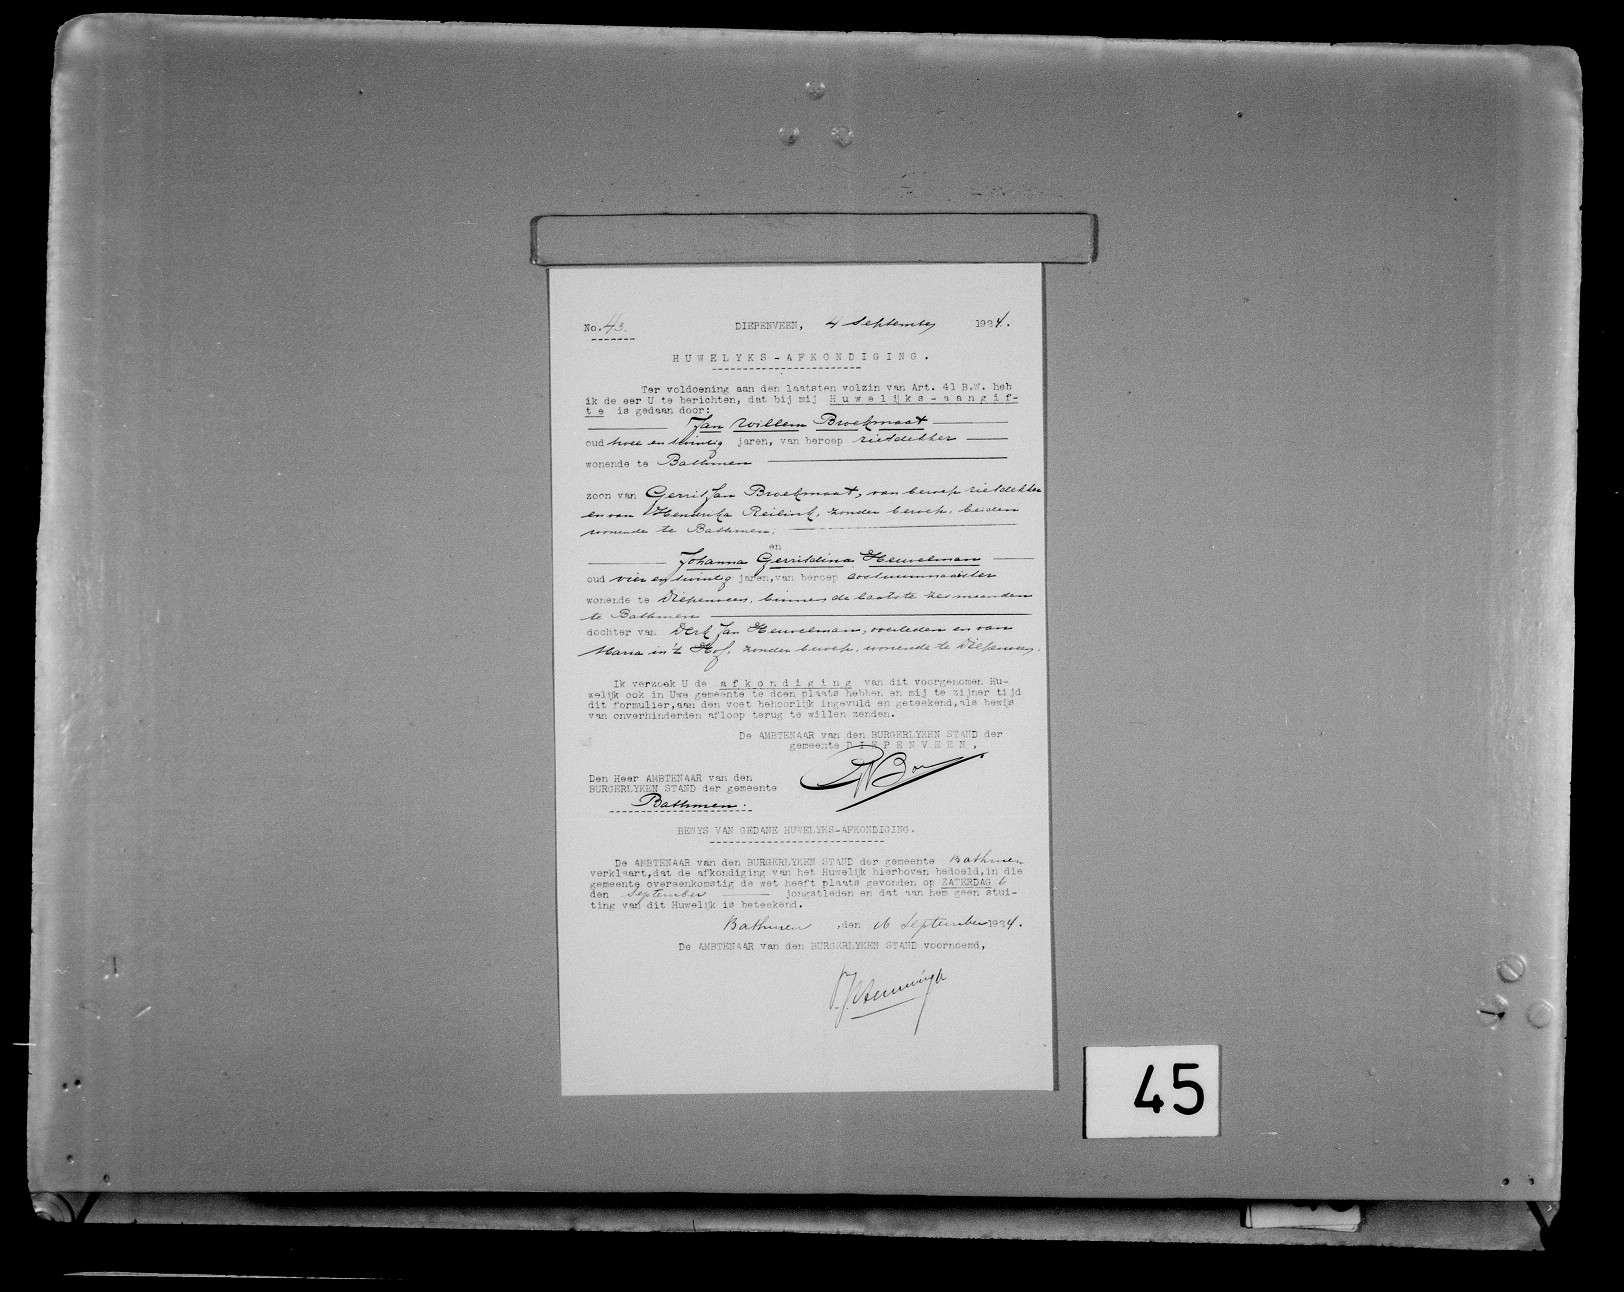 No. 43. DIEPENVEEN, 4 September 1924.
HUWELYKS-AFKONDIGING.
Ter voldoening aan den laatsten volzin van Art. 41 B.W. heb
ik de eer U te berichten, dat bij mij Huwelijks-aangif-
te is gedaan door:
Jan Willem Broekmaat
oud twee en twintig jaren, van beroep rietdekker
wonende te Bathmen
zoon van Gerrit Jan Broekmaat, van beroep rietdekker
en van Hendrika Reilink, zonder beroep, beiden
wonende te Bathmen,
en
Johanna Gerritdina Heuvelman
oud vier en twintig jaren, van beroep costuumnaaister
wonende te Diepenveen, binnen de laatste zes maanden
te Bathmen
dochter van Derk Jan Heuvelman, overleden en van
Maria in 't Hof, zonder beroep, wonende te Diepenveen.
Ik verzoek U de afkondiging van dit voorgenomen Hu-
welijk ook in Uwe gemeente te doen plaats hebben en mij te zijner tijd
dit formulier, aan den voet behoorlijk ingevuld en geteekend, als bewijs
van onverhinderden afloop terug te willen zenden.
De AMBTENAAR van den BURGERLYKEN STAND der
gemeente DIEPENVEEN,
Den Heer AMBTENAAR van den
BURGERLYKEN STAND der gemeente
Bathmen.
BEWYS VAN GEDANE HUWELYKS-AFKONDIGING.
De AMBTENAAR van den BURGERLYKEN STAND der gemeente Bathmen
verklaart, dat de afkondiging van het Huwelijk hierboven bedoeld, in die
gemeente overeenkomstig de wet heeft plaats gevonden op ZATERDAG 6
den September jongstleden en dat aan hem geen stui-
ting van dit Huwelijk is beteekend.
Bathmen, den 16 September 1924.
De AMBTENAAR van den BURGERLYKEN STAND voornoemd,
45